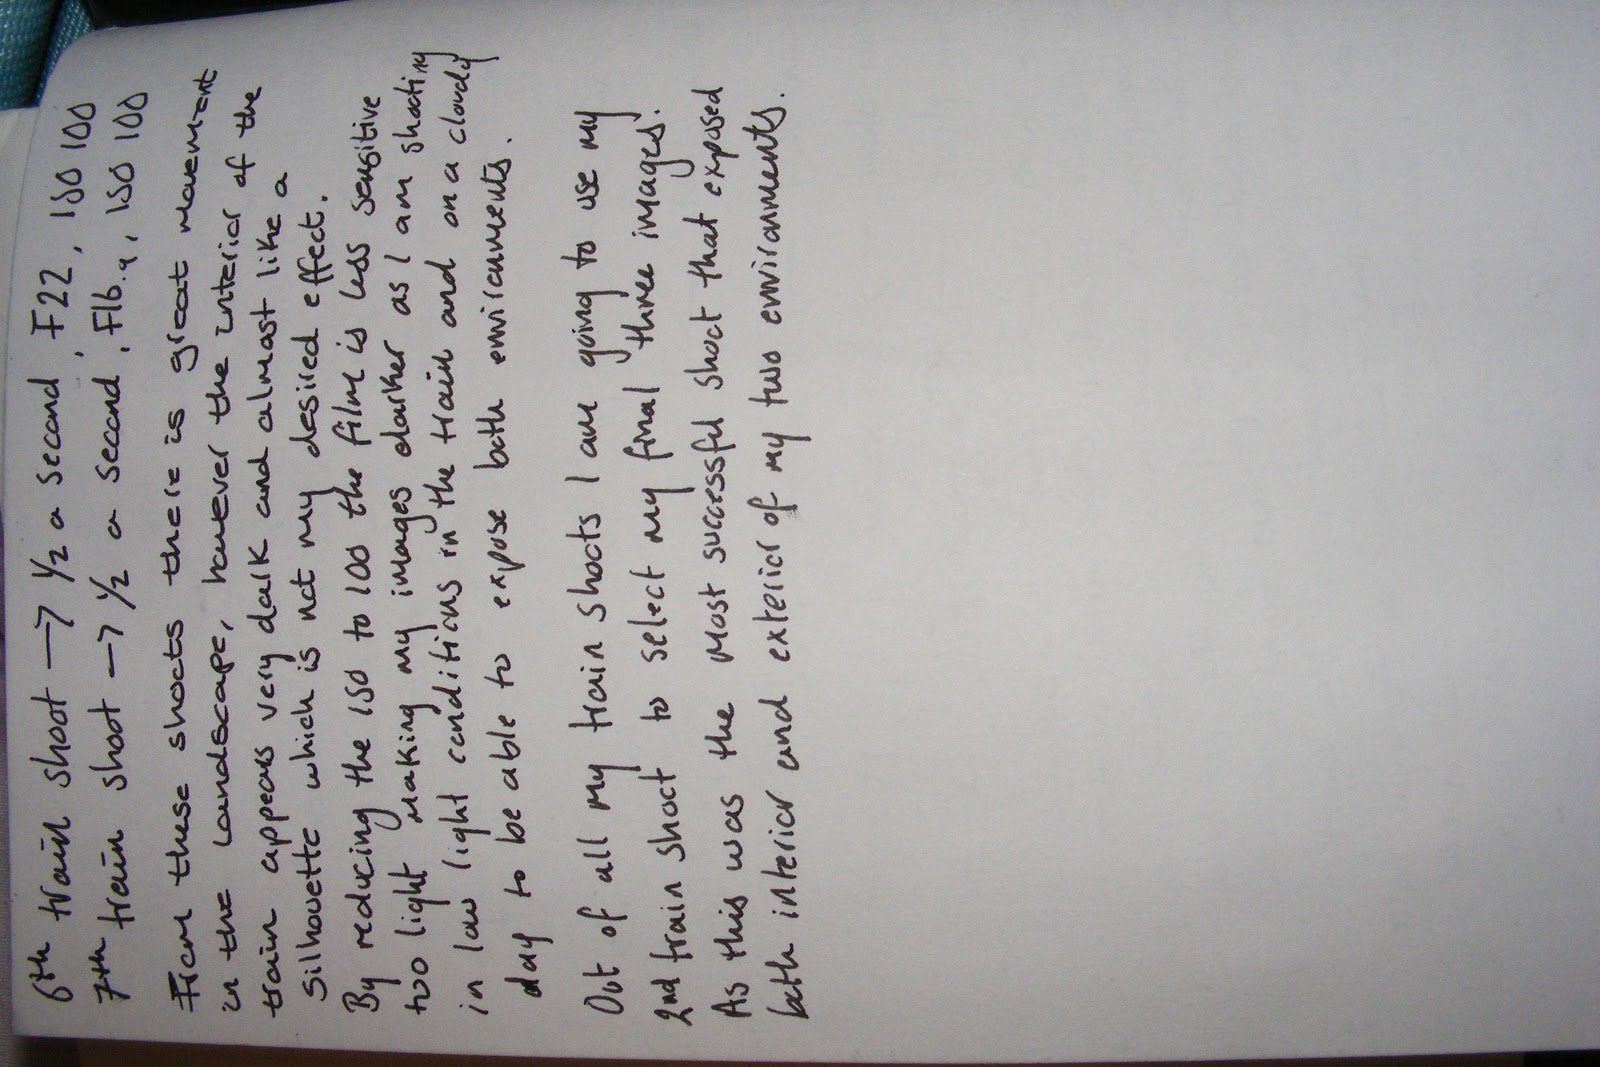 6th train shoot → 1/2 a second, F22, ISO 100
7th train shoot → 1/2 a second, F16.9, ISO 100
From these shoots there is great movement
in the landscape, however the interior of the
train appears very dark and almost like a
silhouette which is not my desired effect.
By reducing the ISO to 100 the film is less sensitive
too light making my images darker as I am shooting
in low light conditions in the train and on a cloudy
day to be able to expose both environments.
Out of all my train shoots I am going to use my
2nd train shoot to select my final three images.
As this was the most successful shoot that exposed
both interior and exterior of my two environments.